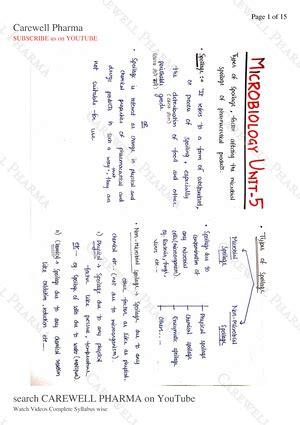 Page 1 of 15
Carewell Pharma
SUBSCRIBE us on YOUTUBE
MICROBIOLOGY UNIT-5
Types of Spoilage, factor affecting the microbial
spoilage of pharmaceutical products.
• Spoilage :- It refers to a form of deterioration,
or process of spoiling, especially
the deterioration of food and other
perishable goods.
OR
• Spoilage is defined as change in physical and
chemical properties of pharmaceutical and
drugs products in such a way, they are
not suitable for use.
• Types of Spoilage
Microbial Spoilage
Non-Microbial Spoilage
• Spoilage due to
contamination of
any microbial
cells (microorganism).
eg. Bacteria, fungi
Physical spoilage
Chemical spoilage
Enzymatic spoilage
Others...
• Non-Microbial Spoilage :- Spoilage due to any
other factor as like a physical,
chemical etc. (not due to microorganism).
a) Physical :- spoilage due to any physical
factor like pressure, temperature,
etc. eg. Spoilage of
b) Chemical :- Spoilage due to any chemical reaction
like oxidation, reduction etc.
search CAREWELL PHARMA on YouTube
Watch Videos Complete Syllabus wise